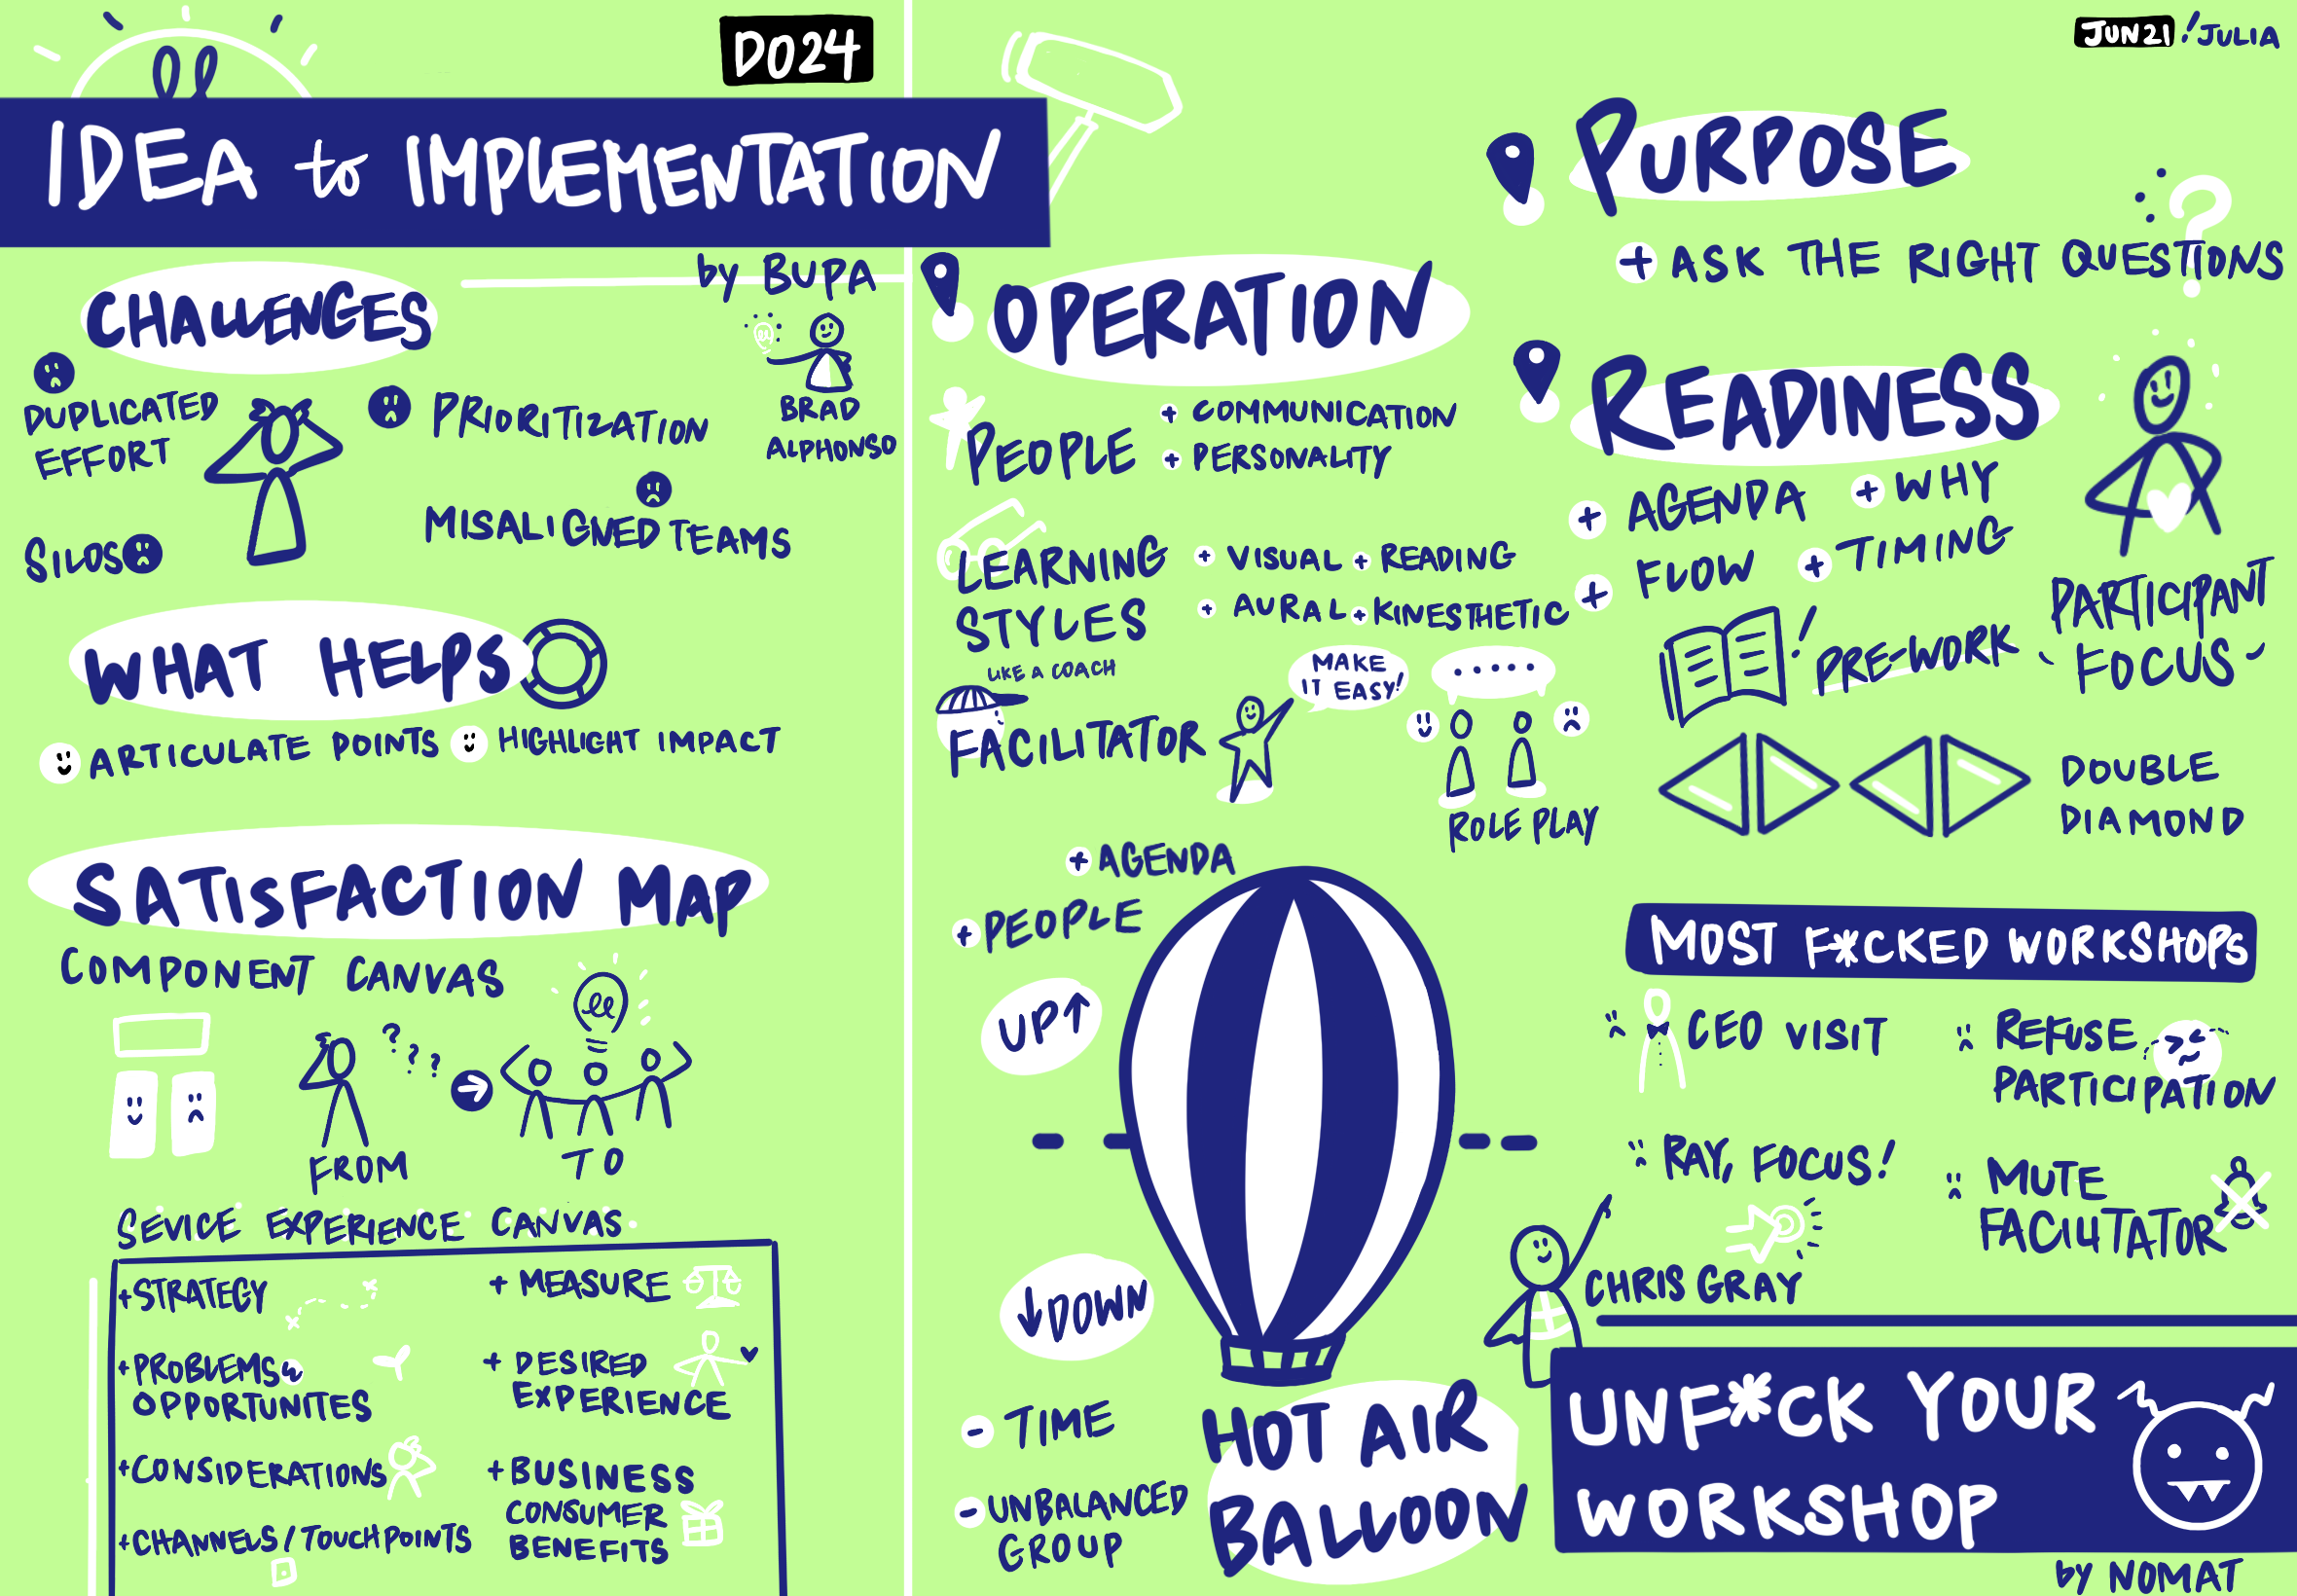 DO24
IDEA to IMPLEMENTATION
by BUPA
BRAD
ALPHONSO
CHALLENGES
DUPLICATED
EFFORT
PRIORITIZATION
SILOS
MISALIGNED TEAMS
WHAT HELPS
ARTICULATE POINTS
HIGHLIGHT IMPACT
SATISFACTION MAP
COMPONENT CANVAS
? ? ?
FROM
TO
SEVICE EXPERIENCE CANVAS
+STRATEGY
+PROBLEMS
OPPORTUNITES
+CONSIDERATIONS
+CHANNELS/TOUCHPOINTS
+ MEASURE
+ DESIRED
EXPERIENCE
+ BUSINESS
CONSUMER
BENEFITS
JUN21 ! JULIA
OPERATION
PEOPLE
+ COMMUNICATION
+ PERSONALITY
LEARNING
STYLES
+ VISUAL + READING
+ AURAL + KINESTHETIC
LIKE A COACH
FACILITATOR
MAKE
IT EASY!
.....
ROLE PLAY
+ AGENDA
+ PEOPLE
UP↑
↓DOWN
- TIME
- UNBALANCED
GROUP
HOT AIR
BALLOON
PURPOSE
?
+ ASK THE RIGHT QUESTIONS
READINESS
+ AGENDA + WHY
+ FLOW + TIMING
! PRE-WORK
PARTICIPANT
FOCUS
DOUBLE
DIAMOND
MOST F*CKED WORKSHOPS
CEO VISIT
REFUSE
PARTICIPATION
RAY, FOCUS!
MUTE
FACILITATOR
CHRIS GRAY
UNF*CK YOUR
WORKSHOP
by NOMAT